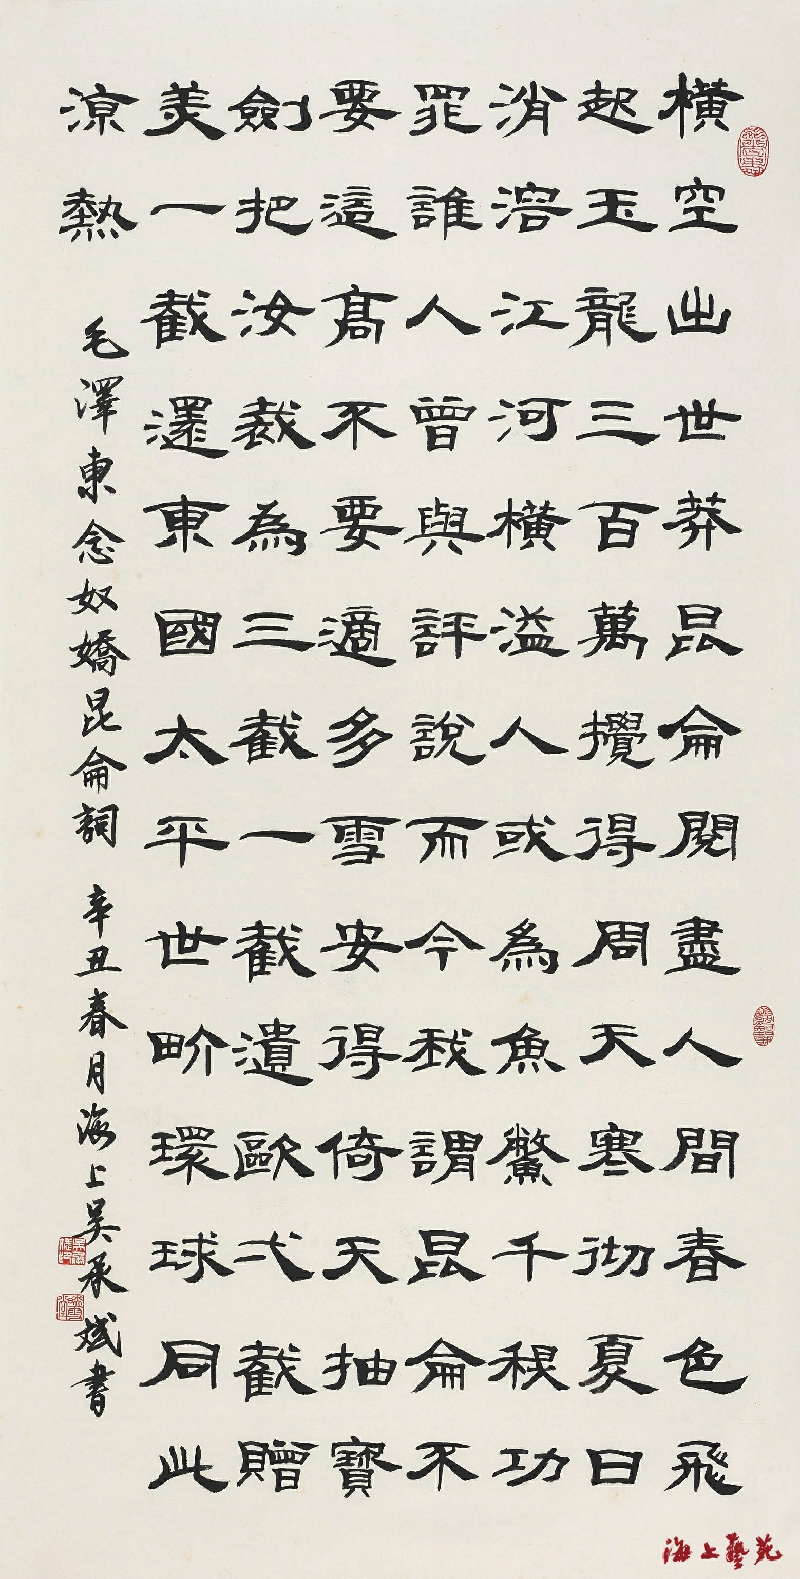 橫空出世莽昆侖閱盡人間春色飛
起玉龍三百萬攪得周天寒彻夏日
消溶江河橫溢人或為魚鱉千秋功
罪誰人曾與評說而今我謂昆侖不
要這高不要這多雪安得倚天抽寶
劍把汝裁為三截一截遺歐弍截贈
美一截還東國太平世畍環球同此
涼熱
毛澤東念奴嬌昆侖詞 辛丑春月海上吳承斌書
海上藝苑